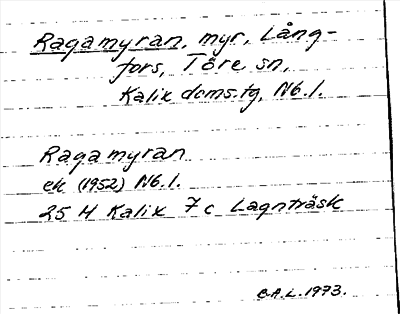 Ragamyran, myr, Lång-
fors, Töre sn,
Kalix doms.tg, Nb.l.
Ragamyran
ek (1952) Nb.l.
25 H Kalix 7 c Lagnträsk
C.A.L. 1973.